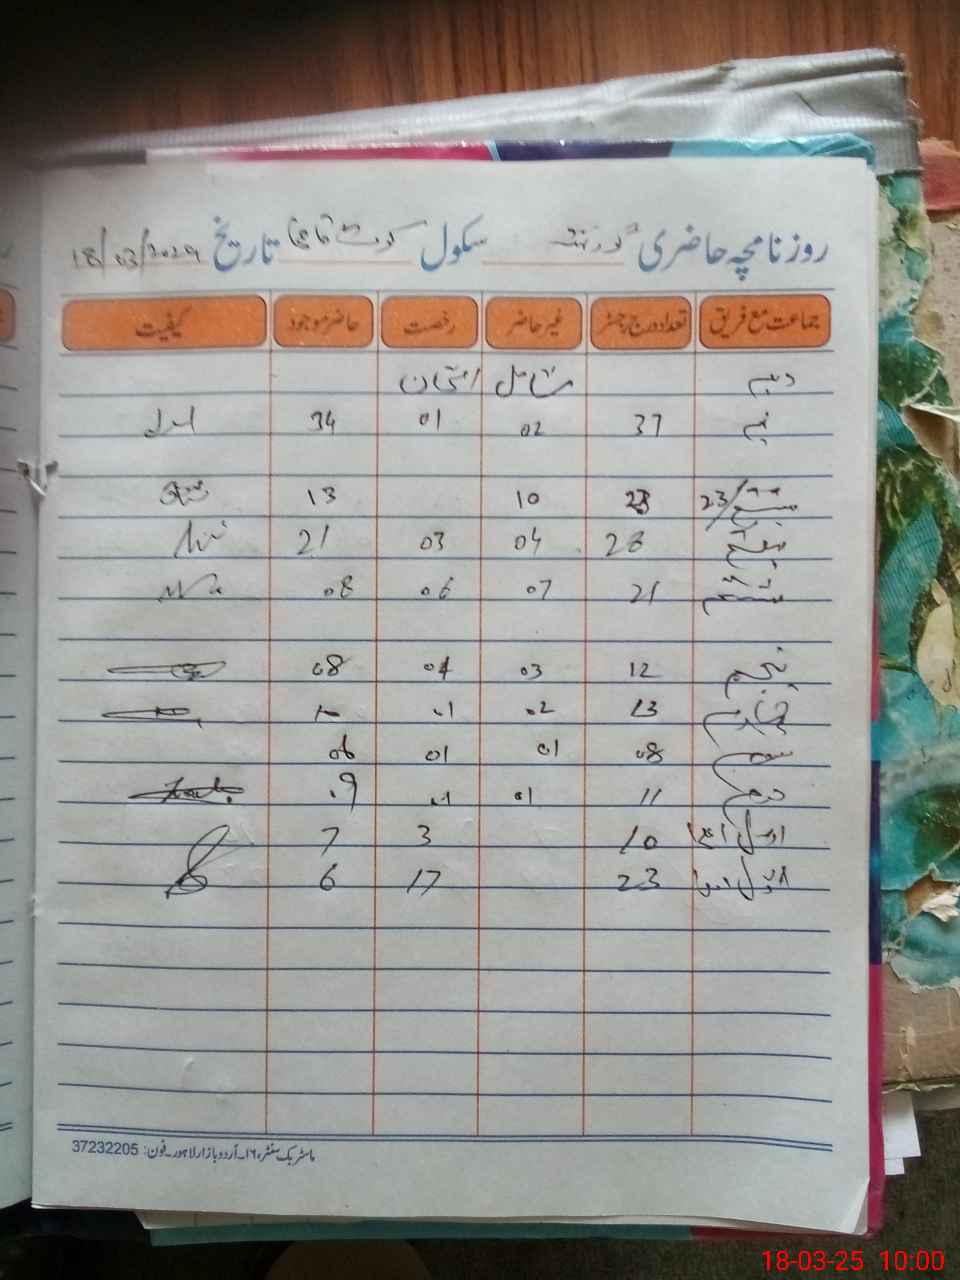 روزنامچہ حاضری گورنمنٹ سکول کوٹ قاضی تاریخ 18/03/2025
جماعت مع فریق تعداد درج رجسٹر غیر حاضر رخصت حاضر موجود کیفیت
دہم شامل امتحان
نہم 37 02 01 34
ہشتم 23 10 13
ہفتم 28 04 03 21
ششم 21 07 06 08
پنجم 12 03 04 08
چہارم 13 02 01 10
سوم 08 01 01 06
دوم 11 01 01 09
اول اعلیٰ 10 3 7
اول ادنیٰ 23 17 6
ماسٹر بک سنٹر، ۱۶۔اُردو بازار لاہور۔فون: 37232205
18-03-25 10:00